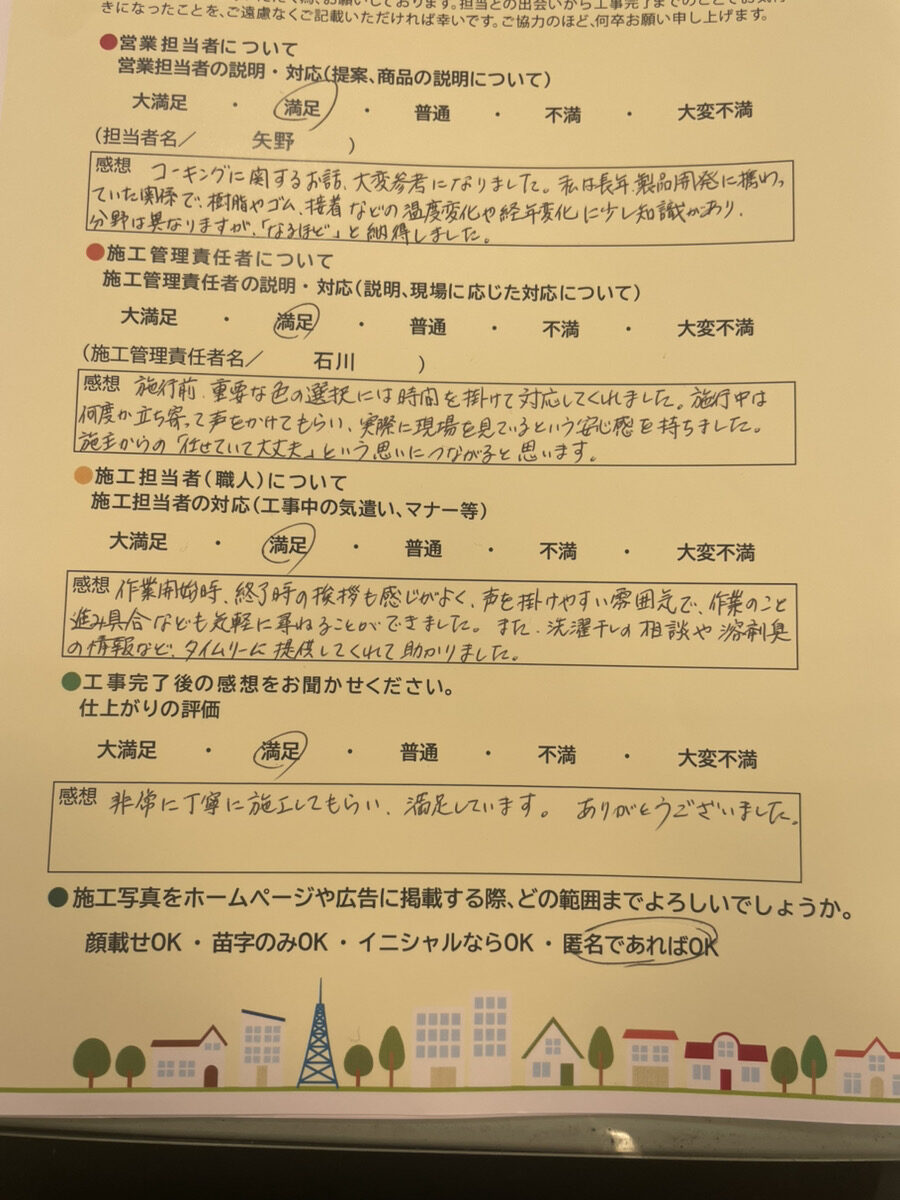 きになったことを、ご遠慮なくご記載いただければ幸いです。ご協力のほど、何卒お願い申し上げます。
●営業担当者について
営業担当者の説明・対応(提案、商品の説明について)
大満足 ・ 満足 ・ 普通 ・ 不満 ・ 大変不満
(担当者名／ 矢野 )
感想 コーキングに関するお話、大変参考になりました。私は長年、製品開発に携わっ
ていた関係で、樹脂やゴム、接着などの温度変化や経年変化に少し知識があり、
分野は異なりますが、「なるほど」と納得しました。
●施工管理責任者について
施工管理責任者の説明・対応(説明、現場に応じた対応について)
大満足 ・ 満足 ・ 普通 ・ 不満 ・ 大変不満
(施工管理責任者名／ 石川 )
感想 施行前、重要な色の選択には時間を掛けて対応してくれました。施行中は
何度か立ち寄って声をかけてもらい、実際に現場を見ているという安心感を持ちました。
施主からの「任せていて大丈夫」という思いにつながると思います。
●施工担当者(職人)について
施工担当者の対応(工事中の気遣い、マナー等)
大満足 ・ 満足 ・ 普通 ・ 不満 ・ 大変不満
感想 作業開始時、終了時の挨拶も感じがよく、声を掛けやすい雰囲気で、作業のこと
進み具合なども気軽に尋ねることができました。また、洗濯干しの相談や溶剤臭
の情報など、タイムリーに提供してくれて助かりました。
●工事完了後の感想をお聞かせください。
仕上がりの評価
大満足 ・ 満足 ・ 普通 ・ 不満 ・ 大変不満
感想 非常に丁寧に施工してもらい、満足しています。 ありがとうございました。
●施工写真をホームページや広告に掲載する際、どの範囲までよろしいでしょうか。
顔載せOK ・ 苗字のみOK ・ イニシャルならOK ・ 匿名であればOK